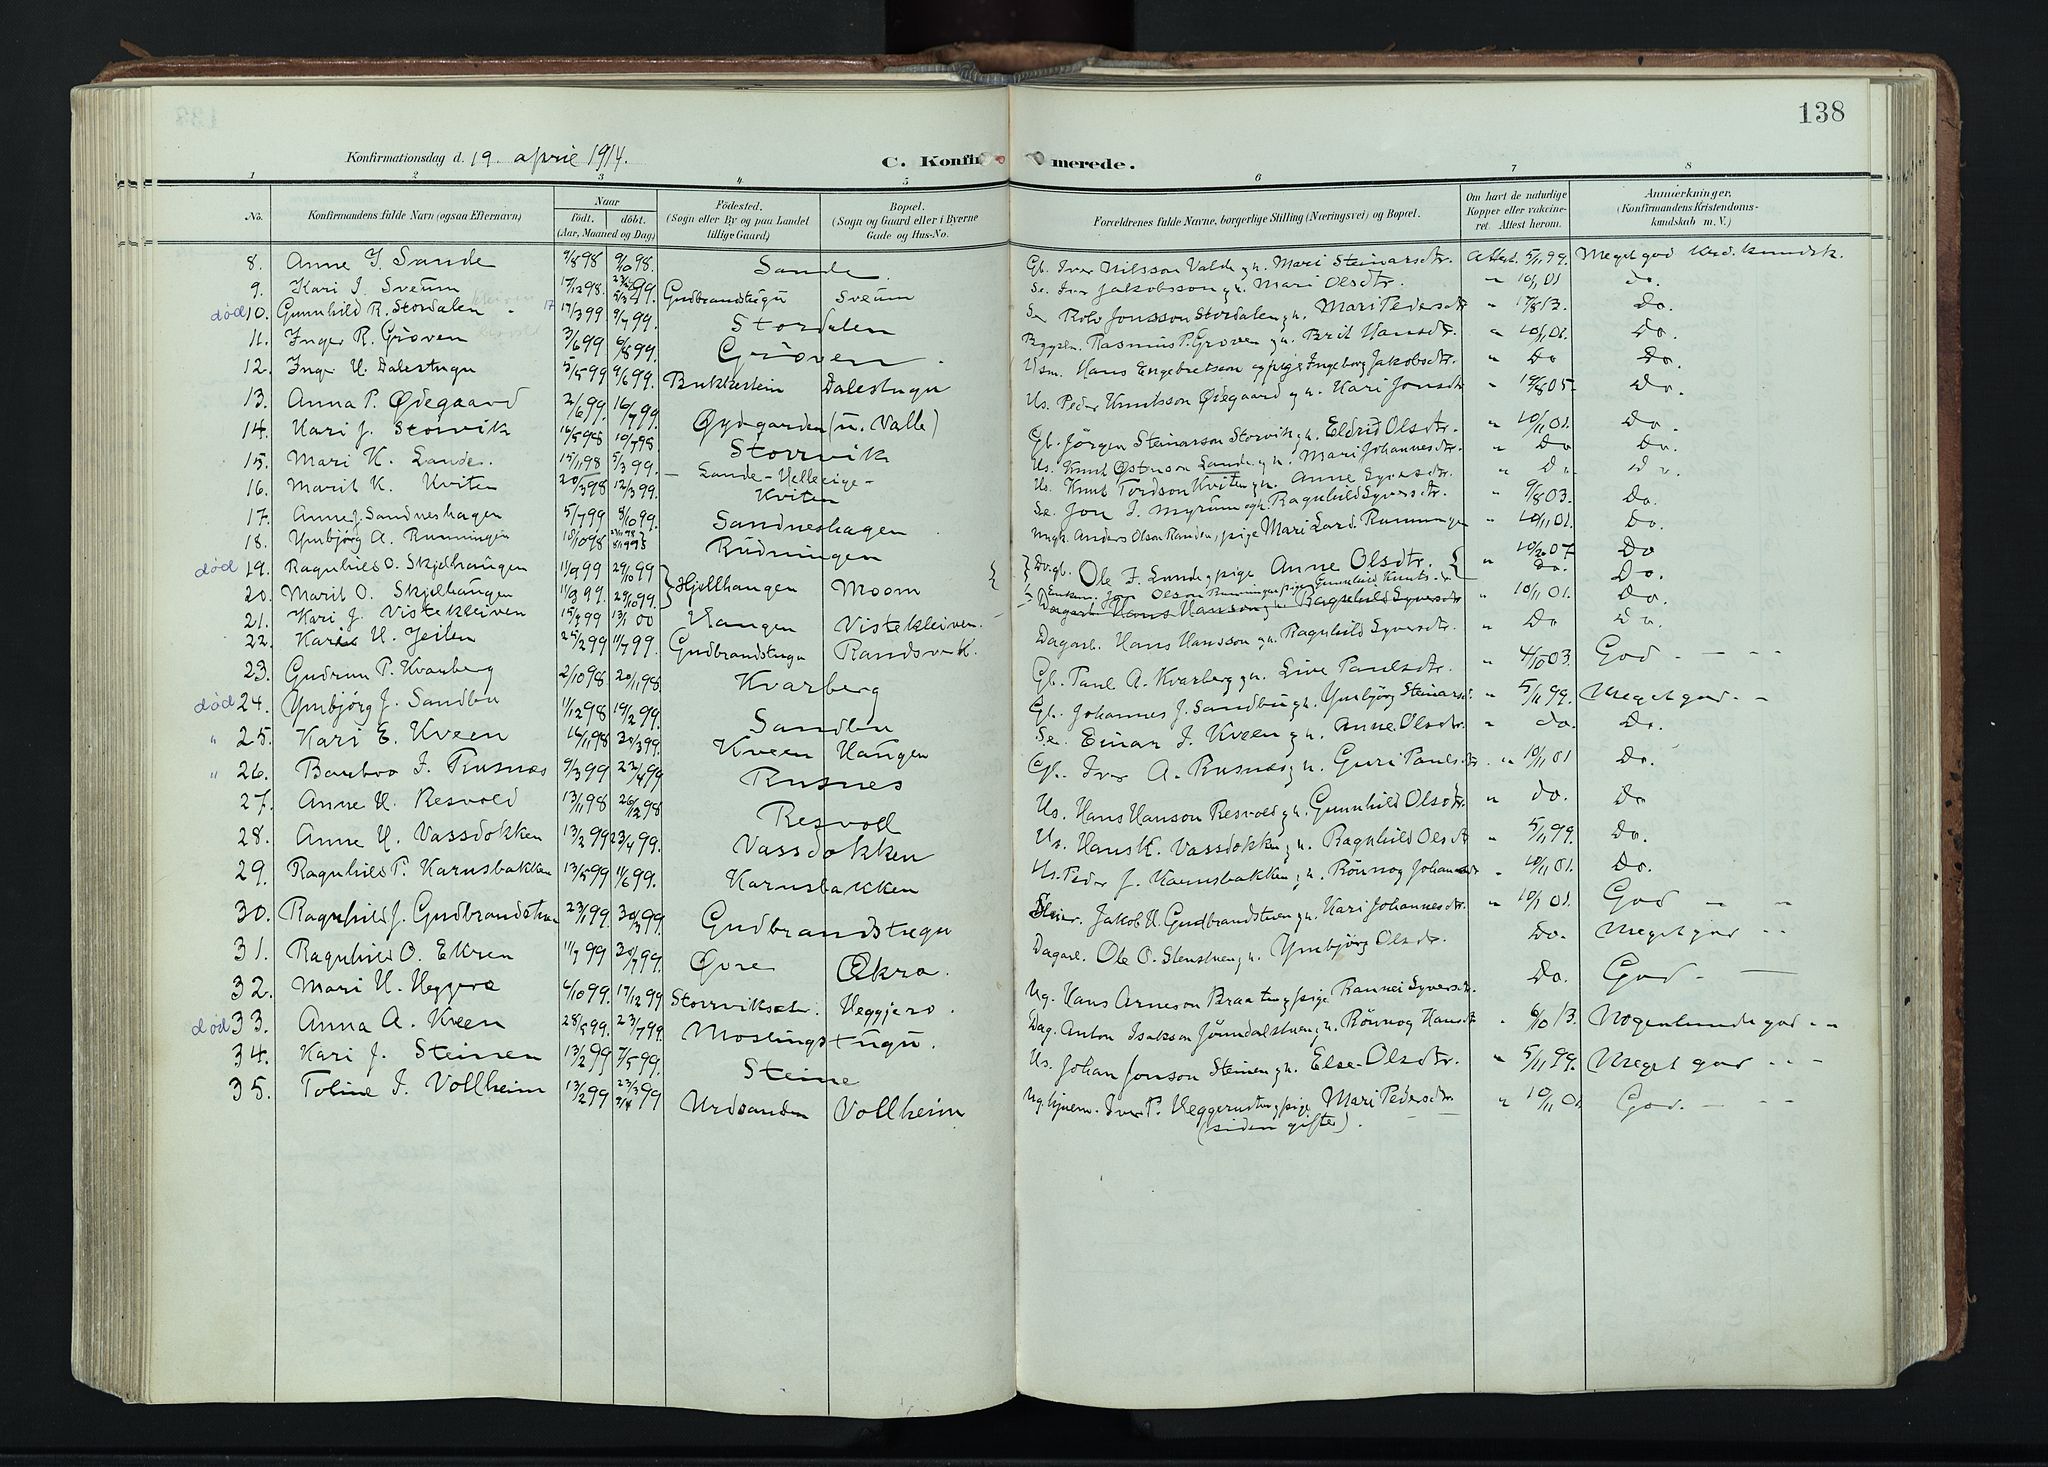 138
Konfirmationsdag d. 19. april 1914.
C. Konfirmerede.
1 2 3 4 5 6 7 8
No. Konfirmandens fulde Navn (ogsaa Efternavn) Naar født. døbt. (Aar, Maaned og Dag) Fødested. (Sogn eller By og paa Landet tillige Gaard) Bopæl. (Sogn og Gaard eller i Byerne Gade og Hus-No. Forældrenes fulde Navne, borgerlige Stilling (Næringsvei) og Bopæl. Om havt de naturlige Kopper eller vakcineret. Attest herom. Anmærkninger. (Konfirmandens Kristendomskundskab m. V.)
8. Anne I. Sande 9/10 98. Sande. Gb. Iver Nilsson Valde g h. Mari Steinarsdtr. Attest. 5/11 99. Meget god Krd. kundsk.
9. Kari I. Sveum 17/12 98. Gudbrandstugu Sveum Se. Iver Jakobsson g h. Mari Olsdtr. " 10/11 01 do.
død 10. Gunnhild R. Stordalen 17/3 99 9/7 99. Stordalen Rolv Jonsson Stordalen g h. Mari Pedersdtr " 17/8 13. Do.
11. Inger R. Grøven 3/6 99 6/8 99. Grøven. Rasmus P. Groven g h. Brit Hansdtr. " 10/11 01. Do.
12. Inga H. Dalestugu 5/5 99 4/6 99. Bukkestein Dalestugu Hans Engebretson og pige Ingeborg Jakobsdtr. " Do Do.
13. Anna P. Ødegaard 2/6 99. 16/7 99. Øygarden (u. Valle) Us. Peder Knutsson Ødegaard g h. Kari Jonsdtr " 05 - Do.
14. Kari J. Storvik 16/5 98 10/7 98. Storvik Gb. Jørgen Steinarson Storvik g h. Eldrid Olsdtr. " 10/11 01. Do.
15. Mari K. Sande. 15/11 98 5/3 99. Sande - Us. Knut Østenson Sande g h. Mari Johannesdtr. " Do Do.
16. Marit K. Kviten 20/3 98 12/3 99. Kviten Us. Knut Tordson Kviten g h. Anne Syversdtr. " Do Do.
17. Anne J. Sandneshagen 5/7 99 8/10 99. Sandneshagen. Se. Jon I. Myrum og h. Ragnhild Syversdtr. " 9/8 03. Do.
18. Ymbjørg A. Runningen 15/10 98 Rudningen Ungk. Anders Olson Randen, pige Mari Runningen " 10/11 01. Do.
død 19. Ragnhild O. Skjelhaugen 11/9 99 29/10 99 Hjellhaugen Moom Ole I. Sande g pige Anne Olsdtr. " 07. Do
20. Marit O. Skjelhaugen 11/9 99. 29/10 99. Do. Do.
21. Kari J. Vistekleiven 15/ 99 13/1 00 Haugen Vistekleiven. Enkem. Jon Olson Runningen pige Gunnhild Knuts. " 10/11 01. Do.
Dagarb. Hans Hanson g h. Ragnhild Syversdtr
22. Kari H. Jeilen 25/2 99 11/7 99. Gudbrandstugu Randsverk. Dagarb. Hans Hansson g h. Ragnhild Syversdtr. " Do Do.
23. Gudrun P. Kvarberg 2/10 98 20/11 98. Kvarberg Gb. Paul A. Kvarberg g h. Live Paulsdtr. " 4/10 03. God - - -
død 24. Ymbjørg J. Sandbu 1/12 98 19/2 99. Sandbu Gb. Johannes J. Sandbu g h. Ymbjørg Steinarsd. " 5/11 99. Meget god - -
" 25. Kari E. Kveen 16/11 98 99. Kveen Haugen Se. Einar I. Kveen g h. Anne Olsdtr. " do. Do.
" 26. Barbro I. Rusnæs 9/3 99 23/4 99 Rusnes Gb. Iver A. Rusnæs g h. Guri Paulsdtr. " 10/11 01 Do.
27. Anne H. Resvold 13/11 98 26/12 98 Resvoll Us. Hans Hanson Resvold g h. Gunnhild Olsdtr. " do. Do
28. Anne H. Vassdokken 13/2 99 23/4 99. Vassdokken Us. Hans K. Vassdokken g h. Ragnhild Olsdt " 5/11 99. Do.
29. Ragnhild P. Karnsbakken 13/5 99 11/6 99. Karnsbakken Us. Peder J. Karnsbakken g h. Rønnog Johannesdtr " 10/11 01. Do.
30. Ragnhild J. Gudbrandstuen 23/1 99. 30/3 99. Gudbrandstugu Jakob H. Gudbrandstuen g h. Kari Johannesdtr. " 10/11 01. God - -
31. Ragnhild O. Ekren 11/7 99 20/7 99. Øvre Ekra. Dagarb. Ole O. Stenstuen g h. Ymbjørg Olsdtr. Do. Meget god - -
32. Mari H. Heggerø 6/10 99. 17/12 99 Heggjerø. Ug. Hans Arneson Braaten g pige Rannei Syversdtr. Do. God - -
død 33. Anna A. Kveen 28/5 99. 23/7 99. Moslingstugu. Dag. Anton Isakson Jøndalstuen g h. Rønnog Hansdtr " 6/10 13. Nogenlunde god - -
34. Kari J. Steinen 13/2 99 7/5 99. Steine Us. Johan Jonson Steinen g h. Else Olsdtr. " 5/11 99. Meget god - -
35. Toline I. Vollheim 13/2 99 99 Ursanden Vollheim Iver P. Heggerusten g pige Mari Pedersdtr " 10/11 01 God. - - -
(siden gifte).